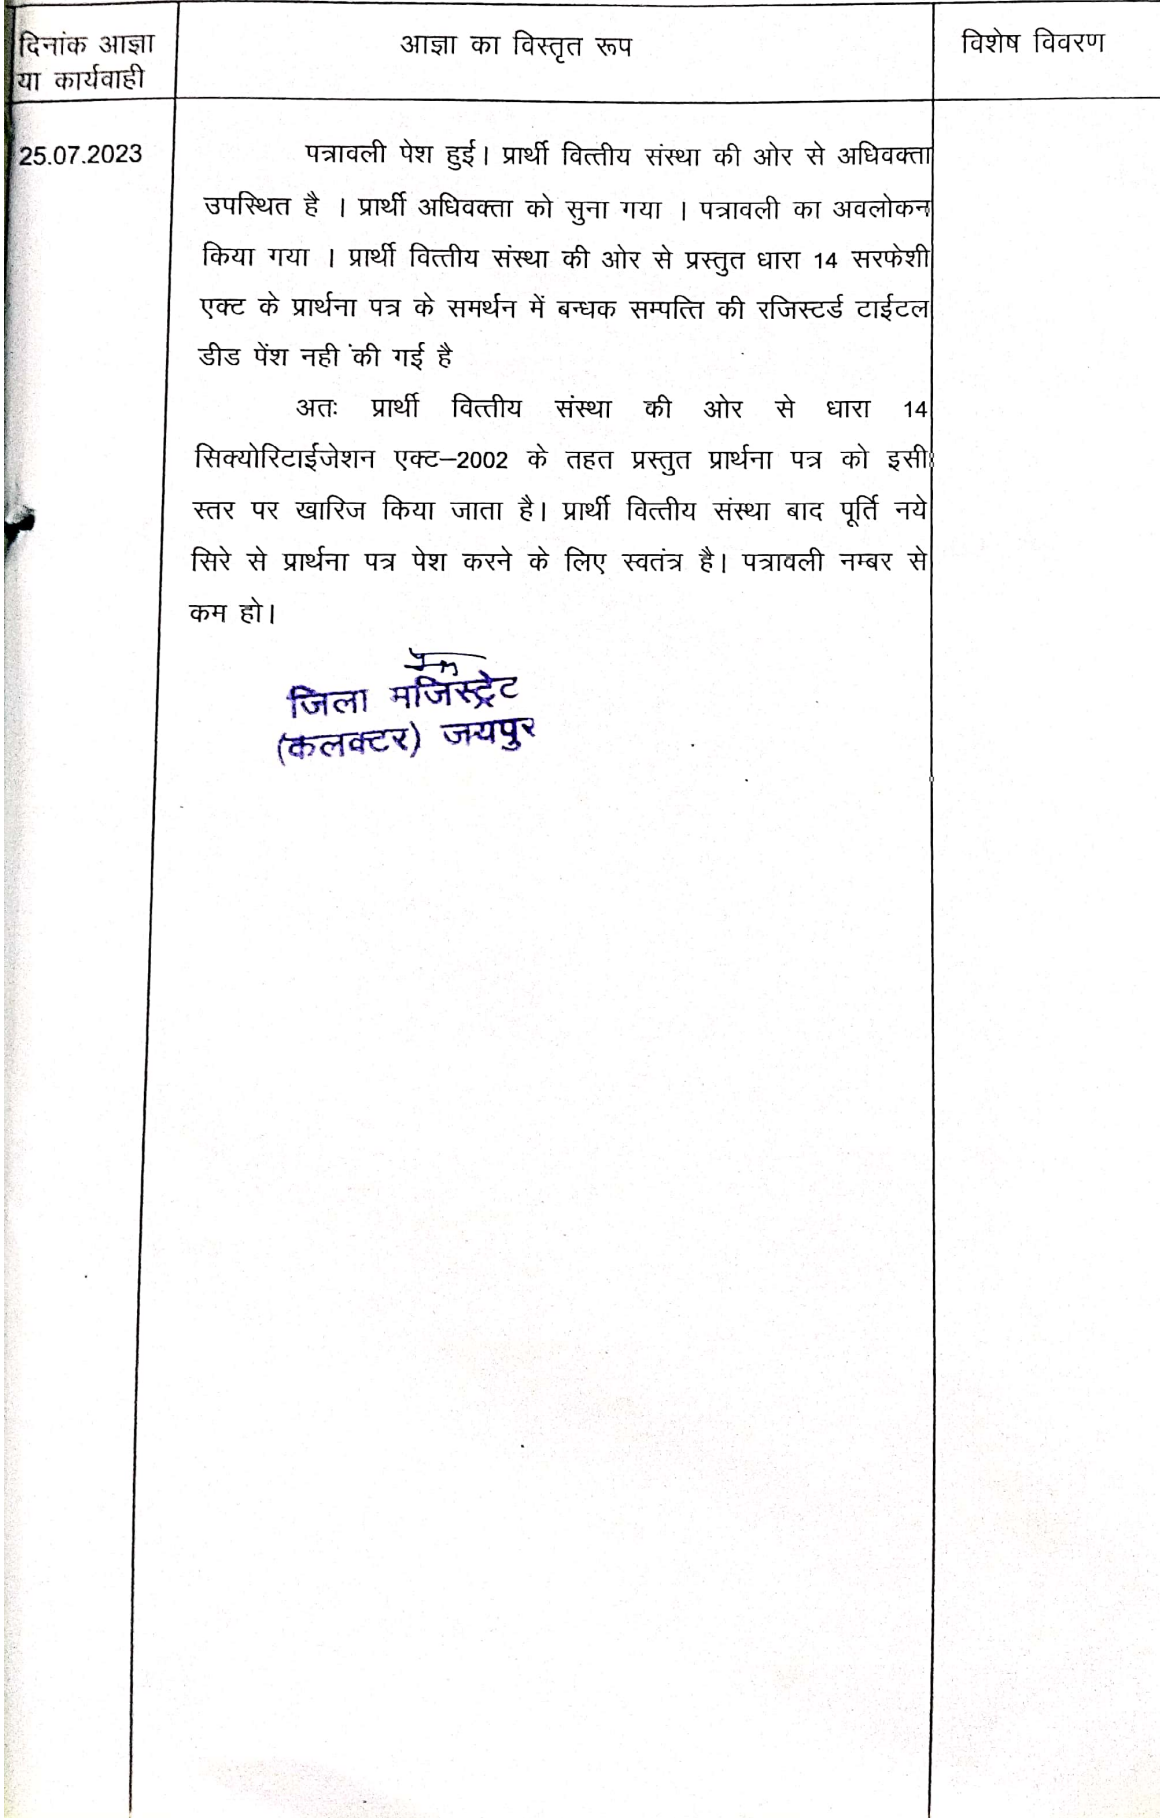 दिनांक आज्ञा
या कार्यवाही
आज्ञा का विस्तृत रूप
विशेष विवरण
25.07.2023
पत्रावली पेश हुई। प्रार्थी वित्तीय संस्था की ओर से अधिवक्ता
उपस्थित है । प्रार्थी अधिवक्ता को सुना गया । पत्रावली का अवलोकन
किया गया । प्रार्थी वित्तीय संस्था की ओर से प्रस्तुत धारा 14 सरफेशी
एक्ट के प्रार्थना पत्र के समर्थन में बन्धक सम्पत्ति की रजिस्टर्ड टाईटल
डीड पेंश नही की गई है
अतः प्रार्थी वित्तीय संस्था की ओर से धारा 14
सिक्योरिटाईजेशन एक्ट–2002 के तहत प्रस्तुत प्रार्थना पत्र को इसी
स्तर पर खारिज किया जाता है। प्रार्थी वित्तीय संस्था बाद पूर्ति नये
सिरे से प्रार्थना पत्र पेश करने के लिए स्वतंत्र है। पत्रावली नम्बर से
कम हो।
जिला मजिस्ट्रेट
(कलक्टर) जयपुर